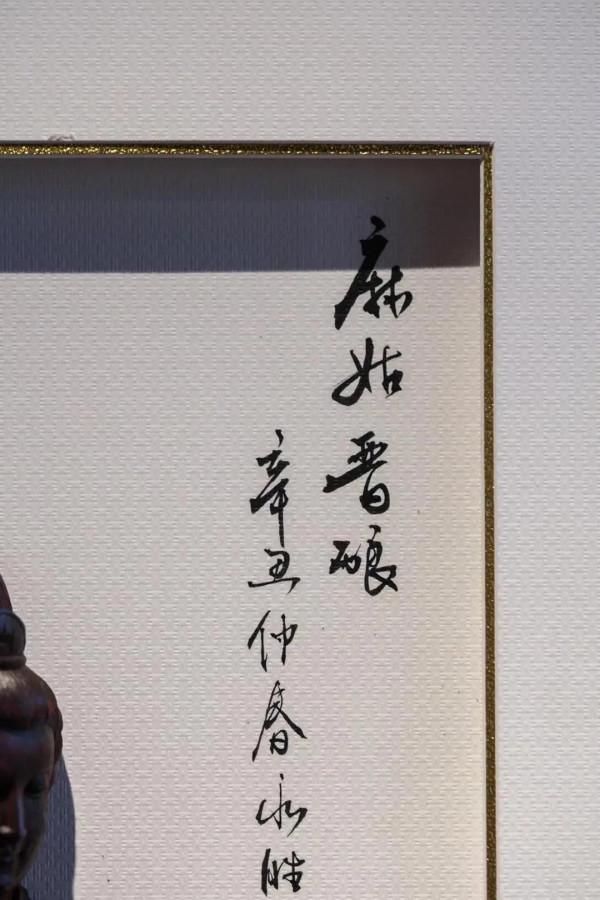 麻姑晋酿
辛丑仲春永胜